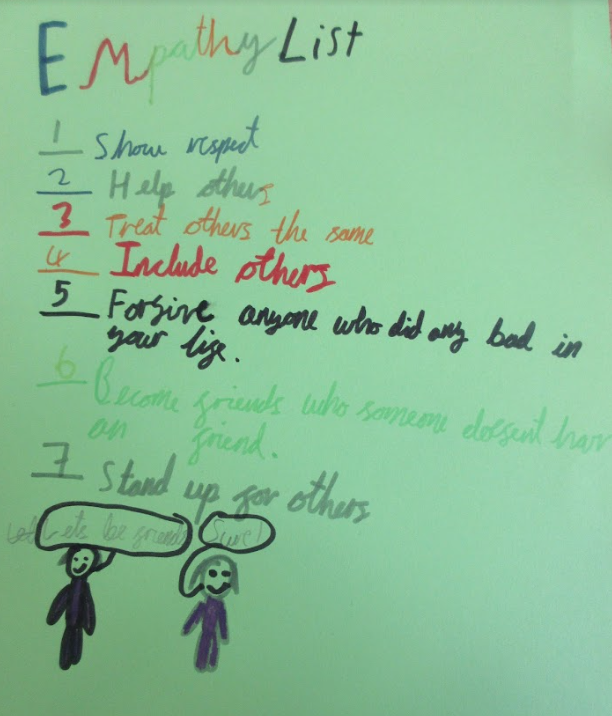 Empathy List
1 Show respect
2 Help others
3 Treat others the same
4 Include others
5 Forgive anyone who did any bad in
your life.
6 Become friends who someone doesent hav
an friend.
7 Stand up for others
Lets be friends
Sure!